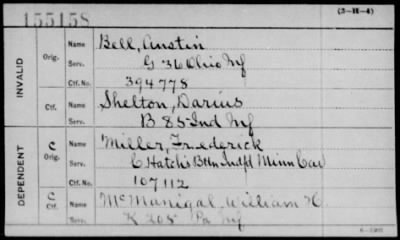 155158
(3-H-4)
INVALID
Orig.
Name
Bell, Austin
Serv.
G 36 Ohio Inf
Ctf. No.
394778
Ctf.
Name
Shelton, Darius
Serv.
B 85 Ind Inf
DEPENDENT
C
Orig.
Name
Miller, Frederick
Serv.
C Hatch's Bttn Indpt Minn Cav
Ctf. No.
107112
C
Ctf.
Name
McManigal William H.
Serv.
K 205 Pa Inf